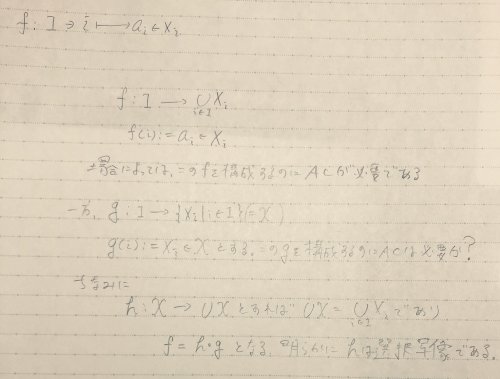 f : I ∋ i ⟼ a_i ∈ X_i
f : I → ∪_{i∈I} X_i
f(i) := a_i ∈ X_i
場合によっては、このfを構成するのにACが必要である
一方、g : I → {X_i | i∈I} (= X)
g(i) := X_i ∈ X とする。このgを構成するのにACは必要か?
ちなみに
h : X → ∪X とすれば ∪X = ∪_{i∈I} X_i であり
f = h∘g となる。明らかに hは選択写像である。